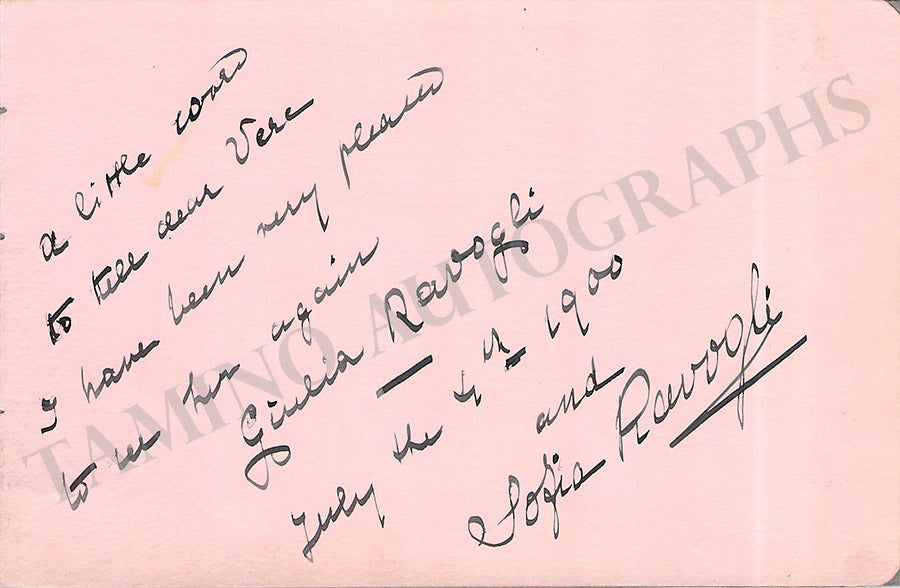 a little word
to tell dear Vere
I have been very pleased
to see her again
Giulia Ravogli
July the 4th 1900
and
Sofia Ravogli
TAMINO AUTOGRAPHS